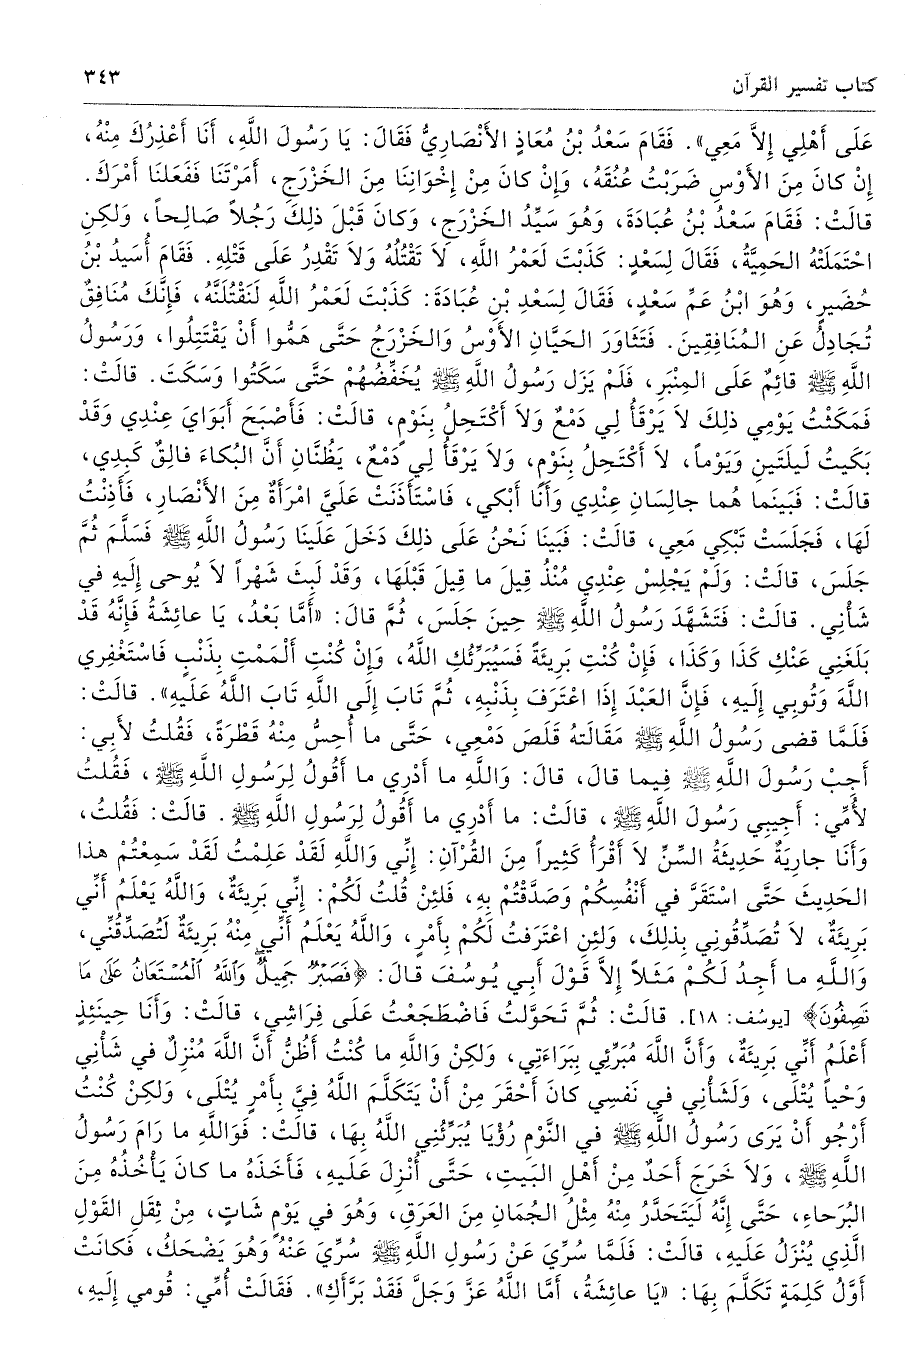 كتاب تفسير القرآن ٣٤٣
عَلَى أَهْلِي إِلاَّ مَعِي». فَقَامَ سَعْدُ بْنُ مُعَاذٍ الأَنْصَارِيُّ فَقَالَ: يَا رَسُولَ اللَّهِ، أَنَا أَعْذِرُكَ مِنْهُ،
إِنْ كانَ مِنَ الأَوْسِ ضَرَبْتُ عُنُقَهُ، وَإِنْ كانَ مِنْ إِخْوَانِنَا مِنَ الخَزْرَجِ، أَمَرْتَنَا فَفَعَلنَا أَمْرَكَ.
قالَتْ: فَقَامَ سَعْدُ بْنُ عُبَادَةَ، وَهُوَ سَيِّدُ الخَزْرَجِ، وَكانَ قَبْلَ ذلِكَ رَجُلاً صَالِحاً، وَلكِنِ
احْتَمَلَتْهُ الحَمِيَّةُ، فَقَالَ لِسَعْدٍ: كَذَبْتَ لَعَمْرُ اللَّهِ، لاَ تَقْتُلُهُ وَلاَ تَقْدِرُ عَلَى قَتْلِهِ. فَقَامَ أُسَيدُ بْنُ
حُضَيرٍ، وَهُوَ ابْنُ عَمِّ سَعْدٍ، فَقَالَ لِسَعْدِ بْنِ عُبَادَةَ: كَذَبْتَ لَعَمْرُ اللَّهِ لَنَقْتُلَنَّهُ، فَإِنَّكَ مُنَافِقٌ
تُجَادِلُ عَنِ المُنَافِقِينَ. فَتَثَاوَرَ الحَيَّانِ الأَوْسُ وَالخَزْرَجُ حَتَّى هَمُّوا أَنْ يَقْتَتِلُوا، وَرَسُولُ
اللَّهِ ﷺ قائِمٌ عَلَى المِنْبَرِ، فَلَمْ يَزَل رَسُولُ اللَّهِ ﷺ يُخَفِّضُهُمْ حَتَّى سَكَتُوا وَسَكَتَ. قالَتْ:
فَمَكَثْتُ يَوْمِي ذلِكَ لاَ يَرْقَأُ لِي دَمْعٌ وَلاَ أَكْتَحِلُ بِنَوْمٍ، قالَتْ: فَأَصْبَحَ أَبَوَايَ عِنْدِي وَقَدْ
بَكَيتُ لَيلَتَينِ وَيَوْماً، لاَ أَكْتَحِلُ بِنَوْمٍ، وَلاَ يَرْقَأُ لِي دَمْعٌ، يَظُنَّانِ أَنَّ البُكاءَ فالِقٌ كَبِدِي،
قالَتْ: فَبَينَما هُما جالِسَانِ عِنْدِي وَأَنَا أَبْكي، فَاسْتَأْذَنَتْ عَلَيَّ امْرَأَةٌ مِنَ الأَنْصَارِ، فَأَذِنْتُ
لَهَا، فَجَلَسَتْ تَبْكِي مَعِي، قالَتْ: فَبَينَا نَحْنُ عَلَى ذلِكَ دَخَلَ عَلَينَا رَسُولُ اللَّهِ ﷺ فَسَلَّمَ ثُمَّ
جَلَسَ، قالَتْ: وَلَمْ يَجْلِسْ عِنْدِي مُنْذُ قِيلَ ما قِيلَ قَبْلَهَا، وَقَدْ لَبِثَ شَهْراً لاَ يُوحى إِلَيهِ في
شَأْنِي. قالَتْ: فَتَشَهَّدَ رَسُولُ اللَّهِ ﷺ حِينَ جَلَسَ، ثُمَّ قالَ: «أَمَّا بَعْدُ، يَا عائِشَةُ فَإِنَّهُ قَدْ
بَلَغَنِي عَنْكِ كَذَا وَكَذَا، فَإِنْ كُنْتِ بَرِيئَةً فَسَيُبَرِّئُكِ اللَّهُ، وَإِنْ كُنْتِ أَلْمَمْتِ بِذَنْبٍ فَاسْتَغْفِرِي
اللَّهَ وَتُوبِي إِلَيهِ، فَإِنَّ العَبْدَ إِذَا اعْتَرَفَ بِذَنْبِهِ، ثُمَّ تَابَ إِلَى اللَّهِ تَابَ اللَّهُ عَلَيهِ». قالَتْ:
فَلَمَّا قضى رَسُولُ اللَّهِ ﷺ مَقَالَتَهُ قَلَصَ دَمْعِي، حَتَّى ما أُحِسُّ مِنْهُ قَطْرَةً، فَقُلتُ لأَبِي:
أَجِبْ رَسُولَ اللَّهِ ﷺ فِيما قالَ، قالَ: وَاللَّهِ ما أَدْرِي ما أَقُولُ لِرَسُولِ اللَّهِ ﷺ، فَقُلتُ
لأُمِّي: أَجِيبِي رَسُولَ اللَّهِ ﷺ، قالَتْ: ما أَدْرِي ما أَقُولُ لِرَسُولِ اللَّهِ ﷺ. قالَتْ: فَقُلتُ،
وَأَنَا جارِيَةٌ حَدِيثَةُ السِّنِّ لاَ أَقْرَأُ كَثِيراً مِنَ القُرْآنِ: إِنِّي وَاللَّهِ لَقَدْ عَلِمْتُ لَقَدْ سَمِعْتُمْ هذا
الحَدِيثَ حَتَّى اسْتَقَرَّ في أَنْفُسِكُمْ وَصَدَّقْتُمْ بِهِ، فَلَئِنْ قُلتُ لَكُمْ: إِنِّي بَرِيئَةٌ، وَاللَّهُ يَعْلَمُ أَنِّي
بَرِيئَةٌ، لاَ تُصَدِّقُونِي بِذلِكَ، وَلَئِنِ اعْتَرَفتُ لَكُمْ بِأَمْرٍ، وَاللَّهُ يَعْلَمُ أَنِّي مِنْهُ بَرِيئَةٌ لَتُصَدِّقُنِّي،
وَاللَّهِ ما أَجِدُ لَكُمْ مَثَلاً إِلاَّ قَوْلَ أَبِي يُوسُفَ قالَ: ﴿فَصَبْرٌ جَمِيلٌ وَاللَّهُ الْمُسْتَعَانُ عَلَى مَا
تَصِفُونَ﴾ [يوسُف: ١٨]. قالَتْ: ثُمَّ تَحَوَّلتُ فَاضْطَجَعْتُ عَلَى فِرَاشِي، قالَتْ: وَأَنَا حِينَئِذٍ
أَعْلَمُ أَنِّي بَرِيئَةٌ، وَأَنَّ اللَّهَ مُبَرِّئِي بِبَرَاءَتِي، وَلكِنْ وَاللَّهِ ما كُنْتُ أَظُنُّ أَنَّ اللَّهَ مُنْزِلٌ في شَأْنِي
وَحْياً يُتْلَى، وَلَشَأْنِي في نَفسِي كانَ أَحْقَرَ مِنْ أَنْ يَتَكَلَّمَ اللَّهُ فِيَّ بِأَمْرٍ يُتْلَى، وَلكِنْ كُنْتُ
أَرْجُو أَنْ يَرَى رَسُولُ اللَّهِ ﷺ في النَّوْمِ رُؤْيَا يُبَرِّئُنِي اللَّهُ بِهَا، قالَتْ: فَوَاللَّهِ ما رَامَ رَسُولُ
اللَّهِ ﷺ، وَلاَ خَرَجَ أَحَدٌ مِنْ أَهْلِ البَيتِ، حَتَّى أُنْزِلَ عَلَيهِ، فَأَخَذَهُ ما كانَ يَأْخُذُهُ مِنَ
البُرَحاءِ، حَتَّى إِنَّهُ لَيَتَحَدَّرُ مِنْهُ مِثْلُ الجُمَانِ مِنَ العَرَقِ، وَهُوَ في يَوْمٍ شَاتٍ، مِنْ ثِقَلِ القَوْلِ
الَّذِي يُنْزَلُ عَلَيهِ، قالَتْ: فَلَمَّا سُرِّيَ عَنْ رَسُولِ اللَّهِ ﷺ سُرِّيَ عَنْهُ وَهُوَ يَضْحَكُ، فَكانَتْ
أَوَّلُ كَلِمَةٍ تَكَلَّمَ بِهَا: «يَا عائِشَةُ، أَمَّا اللَّهُ عَزَّ وَجَلَّ فَقَدْ بَرَّأَكِ». فَقَالَتْ أُمِّي: قُومِي إِلَيهِ،